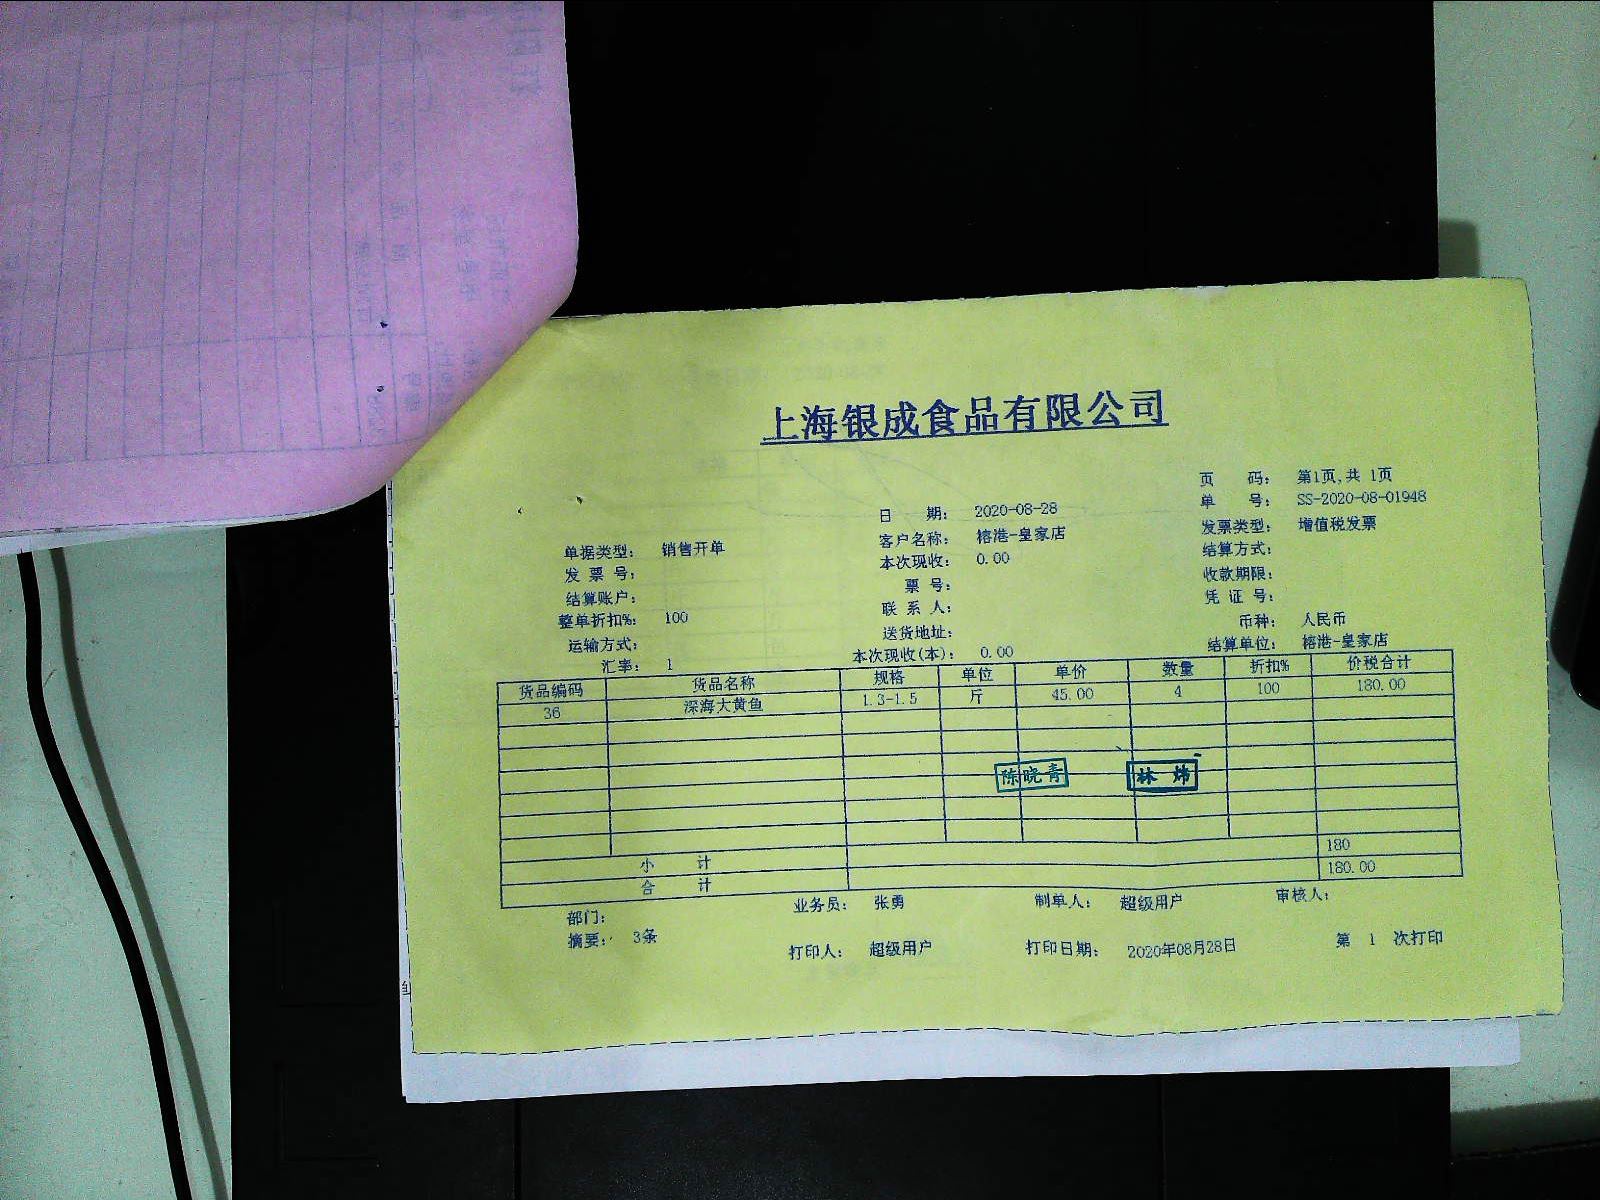 上海银成食品有限公司
页 码： 第1页,共 1页
单 号： SS-2020-08-01948
日 期： 2020-08-28
发票类型： 增值税发票
单据类型： 销售开单
客户名称： 榕港-皇家店
结算方式：
发 票 号：
本次现收： 0.00
收款期限：
结算账户：
票 号：
凭 证 号：
整单折扣%： 100
联 系 人：
币种： 人民币
运输方式：
送货地址：
结算单位： 榕港-皇家店
汇率： 1
本次现收(本)： 0.00
货品编码 货品名称 规格 单位 单价 数量 折扣% 价税合计
36 深海大黄鱼 1.3-1.5 斤 45.00 4 100 180.00
陈晓青 林炜
小 计 180
合 计 180.00
部门： 业务员： 张勇 制单人： 超级用户 审核人：
摘要： 3条 打印人： 超级用户 打印日期： 2020年08月28日 第 1 次打印